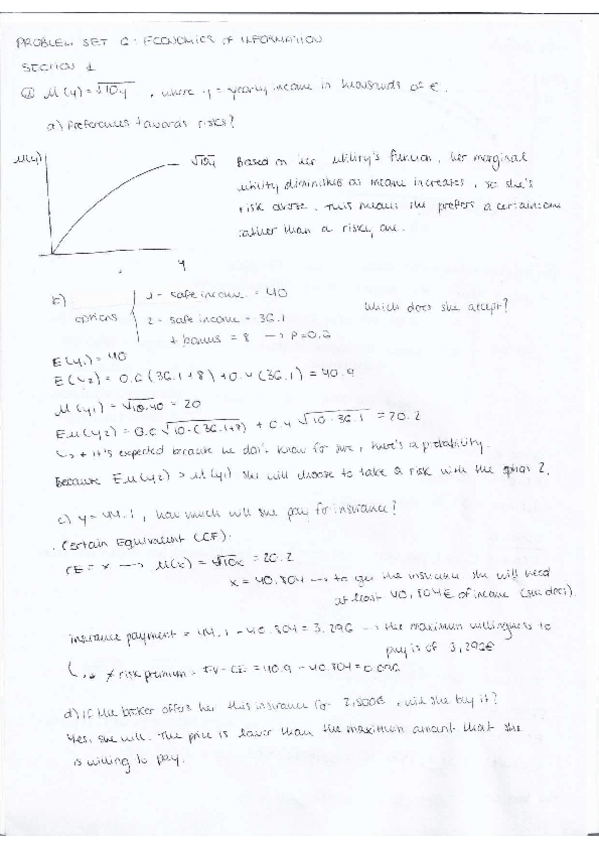 PROBLEM SET 6: ECONOMICS OF INFORMATION
SECTION 1
① M(y) = √10y , where y = yearly income in thousands of €.
a) Preferences towards risks?
M(y)
√10y
y
Based on her utility's function, her marginal
utility diminishes as income increases, so she's
risk averse. This means she prefers a certain one
rather than a risky one.
b)
options
1 - safe income = 40
2 - safe income = 36.1
+ bonus = 8 → P=0.6
which does she accept?
E(y₁) = 40
E(y₂) = 0.6(36.1+8) + 0.4(36.1) = 40.9
M(y₁) = √10·40 = 20
EM(y₂) = 0.6 √10·(36.1+8) + 0.4 √10·36.1 = 20.2
↳ it's expected because we don't know for sure, there's a probability.
Because EM(y₂) > M(y₁) she will choose to take a risk with the option 2.
c) y = 44.1, how much will she pay for insurance?
· Certain Equivalent (CE):
CE = x → M(x) = √10x = 20.2
x = 40.804 → to get the insurance she will need
at least 40,804€ of income (she does).
insurance payment = 44.1 - 40.804 = 3.296 → the maximum willingness to
pay is of 3,296€
↳ ≠ risk premium = EV - CE = 40.9 - 40.804 = 0.096
d) if the broker offers her this insurance for 2,500€, will she buy it?
Yes, she will. The price is lower than the maximum amount that she
is willing to pay.